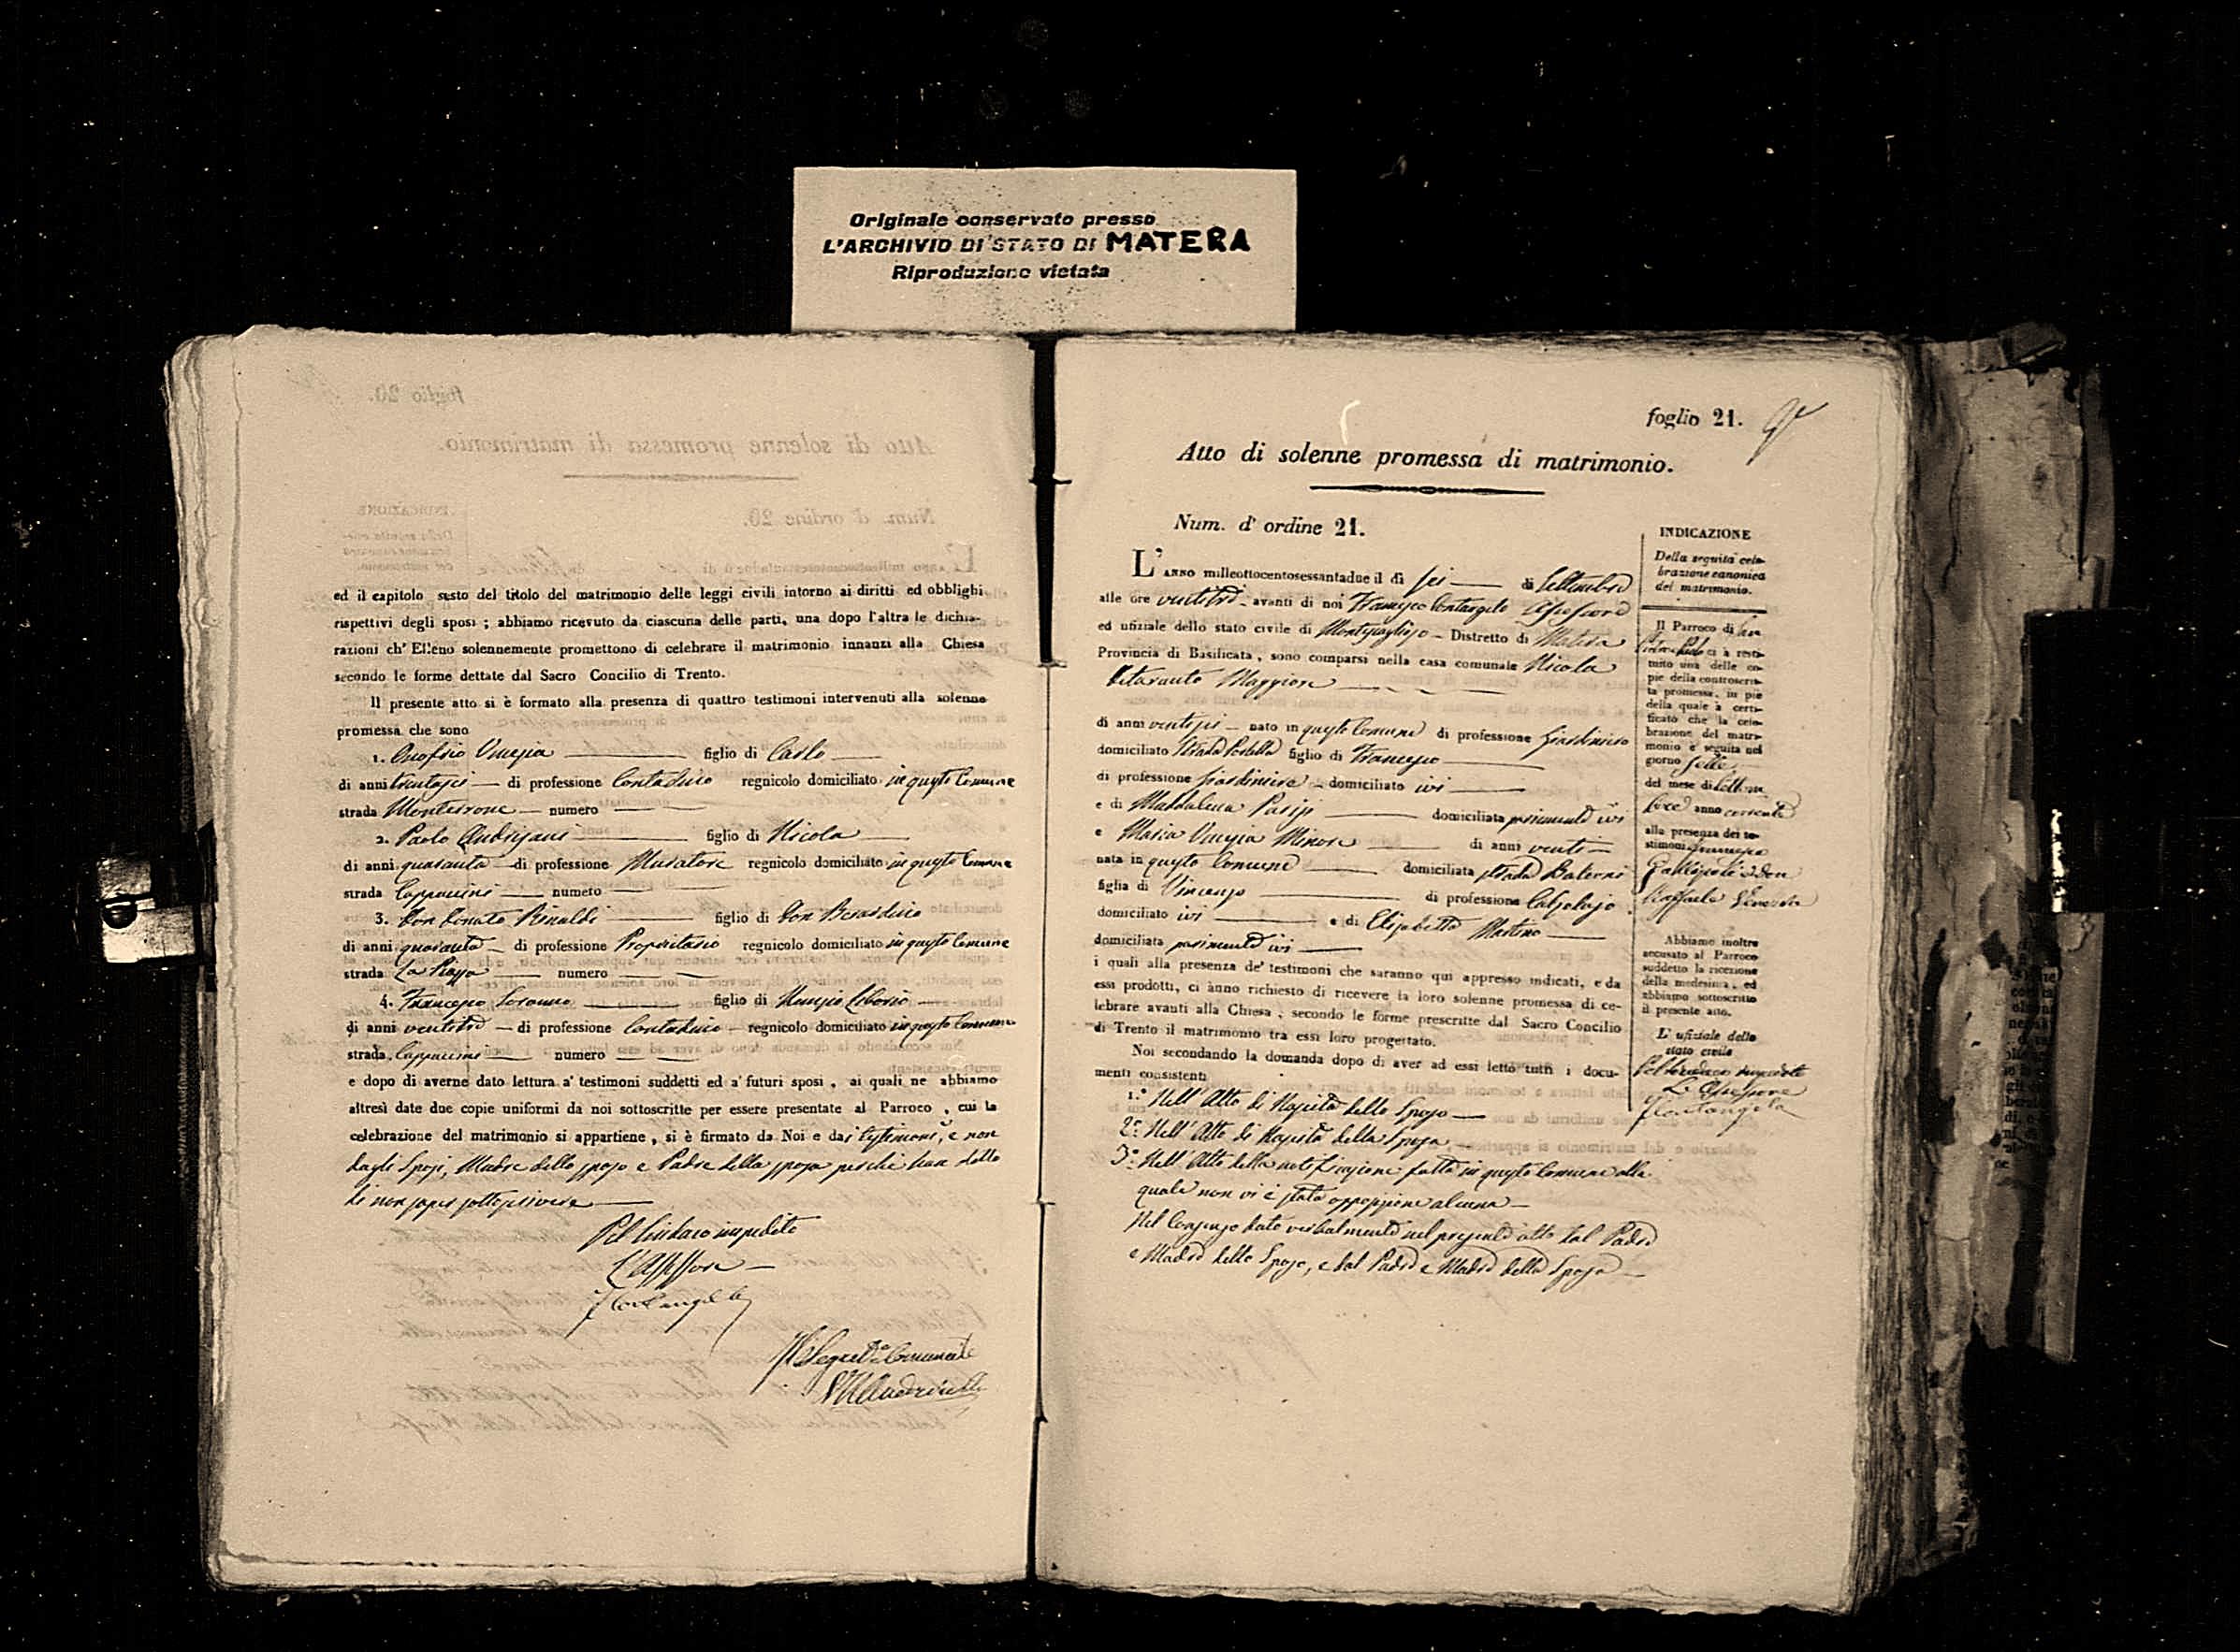 Originale conservato presso
L'ARCHIVIO DI STATO DI MATERA
Riproduzione vietata
ed il capitolo sesto del titolo del matrimonio delle leggi civili intorno ai diritti ed obblighi
rispettivi degli sposi ; abbiamo ricevuto da ciascuna delle parti, una dopo l'altra le dichia-
razioni ch' Elleno solennemente promettono di celebrare il matrimonio innanzi alla Chiesa
secondo le forme dettate dal Sacro Concilio di Trento.
Il presente atto si è formato alla presenza di quattro testimoni intervenuti alla solenne
promessa che sono
1. Onofrio Venezia figlio di Carlo
di anni trentasei di professione Contadino regnicolo domiciliato in questo Comune
strada Monterrone numero
2. Paolo Andrisani figlio di Nicola
di anni quaranta di professione Muratore regnicolo domiciliato in questo Comune
strada Cappuccini numero
3. Don Donato Rinaldi figlio di Don Berardino
di anni quaranta di professione Proprietario regnicolo domiciliato in questo Comune
strada La Piazza numero
4. Francesco figlio di Nunzio Liborio
di anni ventitre di professione Contadino regnicolo domiciliato in questo Comune
strada Cappuccini numero
e dopo di averne dato lettura a' testimoni suddetti ed a' futuri sposi , ai quali ne abbiamo
altresì date due copie uniformi da noi sottoscritte per essere presentate al Parroco , cui la
celebrazione del matrimonio si appartiene , si è firmato da Noi e dai testimoni, e non
dagli Sposi, Madre dello sposo e Padre della sposa perchè han detto
di non saper sottoscrivere
Pel Sindaco impedito
L'Assessore
F Contangelo
Il Segret.o Comunale
foglio 21.
Atto di solenne promessa di matrimonio.
Num. d' ordine 21.
L' ANNO milleottocentosessantadue il dì sei di Settembre
alle ore ventitre avanti di noi Francesco Contangelo Assessore
ed ufiziale dello stato civile di Montescaglioso Distretto di Matera
Provincia di Basilicata , sono comparsi nella casa comunale Nicola
Ditaranto Maggiore
di anni ventisei nato in questo Comune di professione Giardiniero
domiciliato Strada Portella figlio di Francesco
di professione Giardiniere domiciliato ivi
e di Maddalena Parisi domiciliata parimenti ivi
e Maria Venezia Minore di anni venti
nata in questo Comune domiciliata strada
figlia di Vincenzo di professione Calzolajo
domiciliato ivi e di Elisabetta Martino
domiciliata parimenti ivi
i quali alla presenza de' testimoni che saranno qui appresso indicati, e da
essi prodotti, ci ànno richiesto di ricevere la loro solenne promessa di ce-
lebrare avanti alla Chiesa , secondo le forme prescritte dal Sacro Concilio
di Trento il matrimonio tra essi loro progettato.
Noi secondando la domanda dopo di aver ad essi letto tutti i docu-
menti consistenti
1.° Nell'Atto di Nascita dello Sposo
2.° Nell'Atto di Nascita della Sposa
3.° Nell'Atto della notificazione fatta in questo Comune alla
quale non vi è stata opposizione alcuna
Nel Consenso dato verbalmente nel presente atto dal Padre
e Madre dello Sposo, e dal Padre e Madre della Sposa
INDICAZIONE
Della seguita cele-
brazione canonica
del matrimonio.
Il Parroco di
ci à resti-
tuito una delle co-
pie della controscrit-
ta promessa, in piè
della quale à certi-
ficato che la cele-
brazione del matri-
monio è seguita nel
giorno sette
del mese di Settem
bre anno corrente
alla presenza dei te-
stimoni
Gallipoli e Don
Raffaele Venezia
Abbiamo inoltre
accusato al Parroco
suddetto la ricezione
della medesima, ed
abbiamo sottoscritto
il presente atto.
L' ufiziale dello
stato civile
Pel Sindaco impedito
L'Assessore
F Contangelo